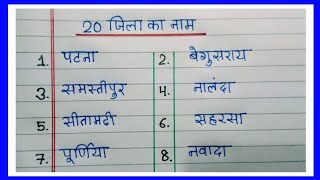 20 जिला का नाम
1. पटना 2. बेगुसराय
3. समस्तीपुर 4. नालंदा
5. सीतामढी 6. सहरसा
7. पूर्णिया 8. नवादा